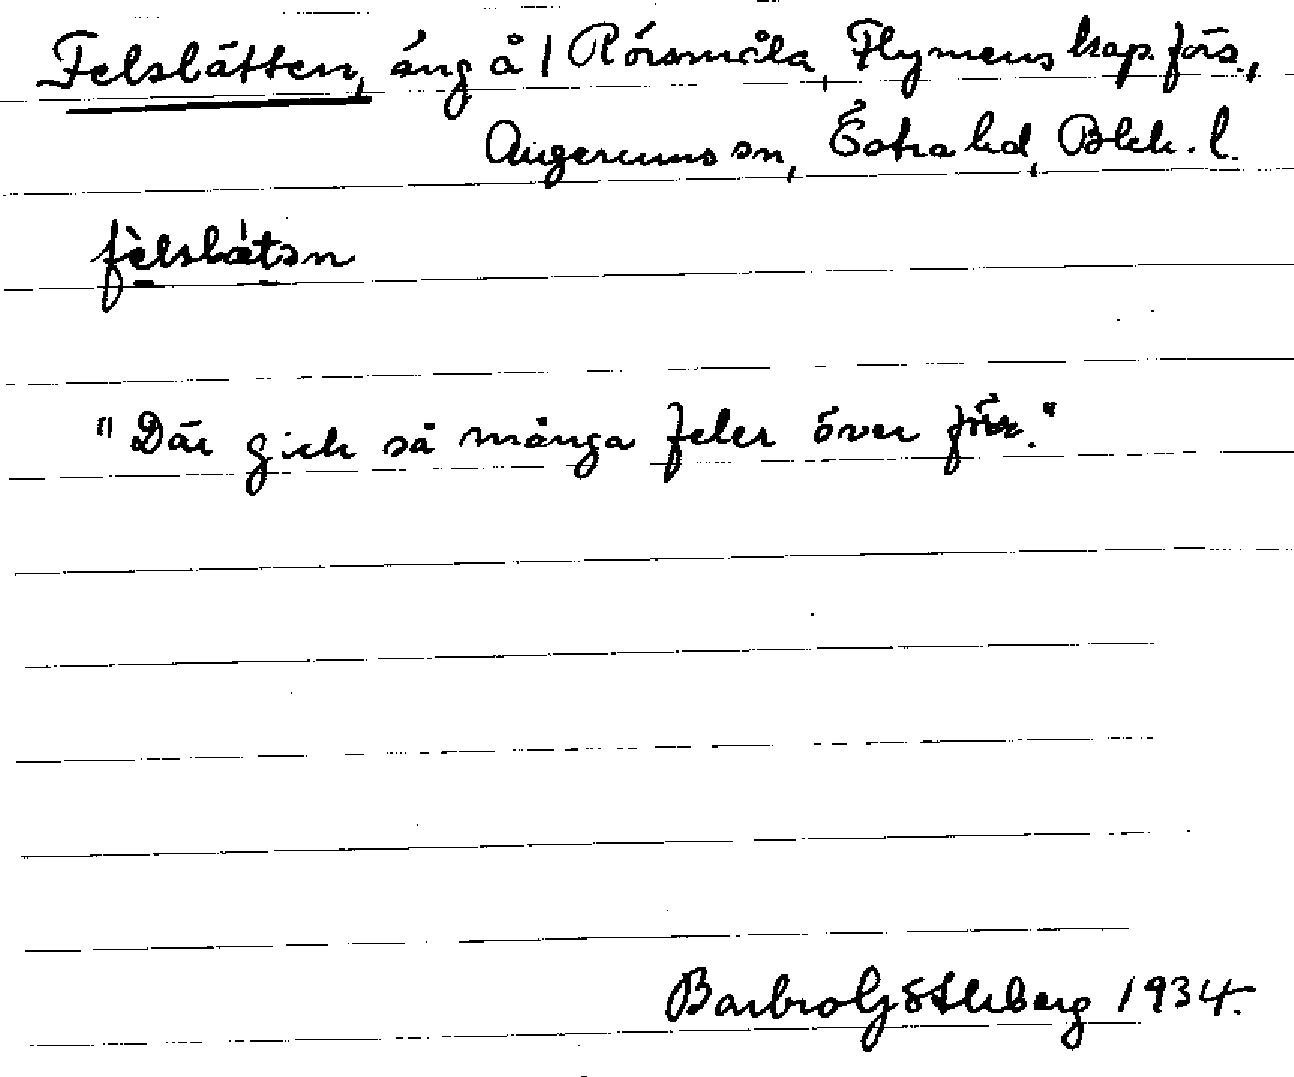 Felslätten, äng å 1 Rörsmåla, Flymens kap. förs.,
Augerums sn, Östra hd, Blek. l.
fèlslǽtən
"Där gick så många feler över förr."
Barbro Götlberg 1934.